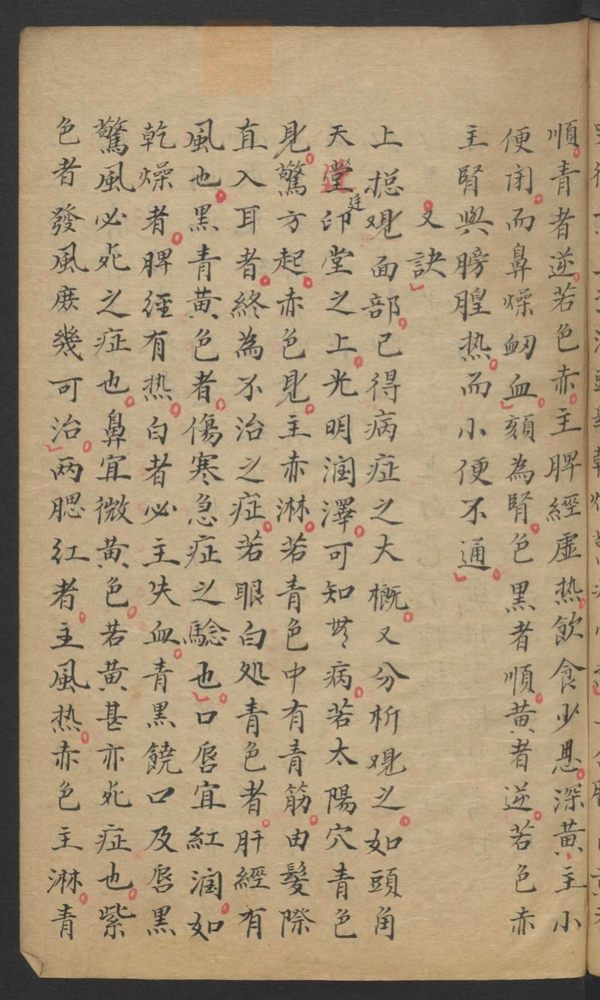 順青者逆若色赤主脾經虛热飲食少思深黃主小
便闭而鼻燥衂血頦為腎色黑者順黃者逆若色赤
主腎與膀胱热而小便不通
又訣
上揔覌面部已得病症之大概又分析覌之如頭角
天堂廷印堂之上光明润澤可知無病若太陽穴青色
見驚方起赤色見主赤淋若青色中有青筋由髮際
直入耳者終為不治之症若眼白処青色者肝經有
風也黑青黃色者傷寒急症之驗也口唇宜紅润如
乾燥者脾經有热白者必主失血青黑饒口及唇黑
驚風必死之症也鼻宜微黃色若黃甚亦死症也紫
色者發風庻幾可治两腮红者主風热赤色主淋青